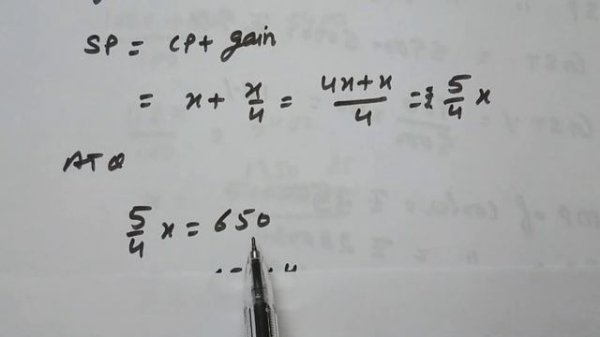 SP = CP + gain
= x + x/4 = (4x+x)/4 = 5/4 x
ATQ
5/4 x = 650